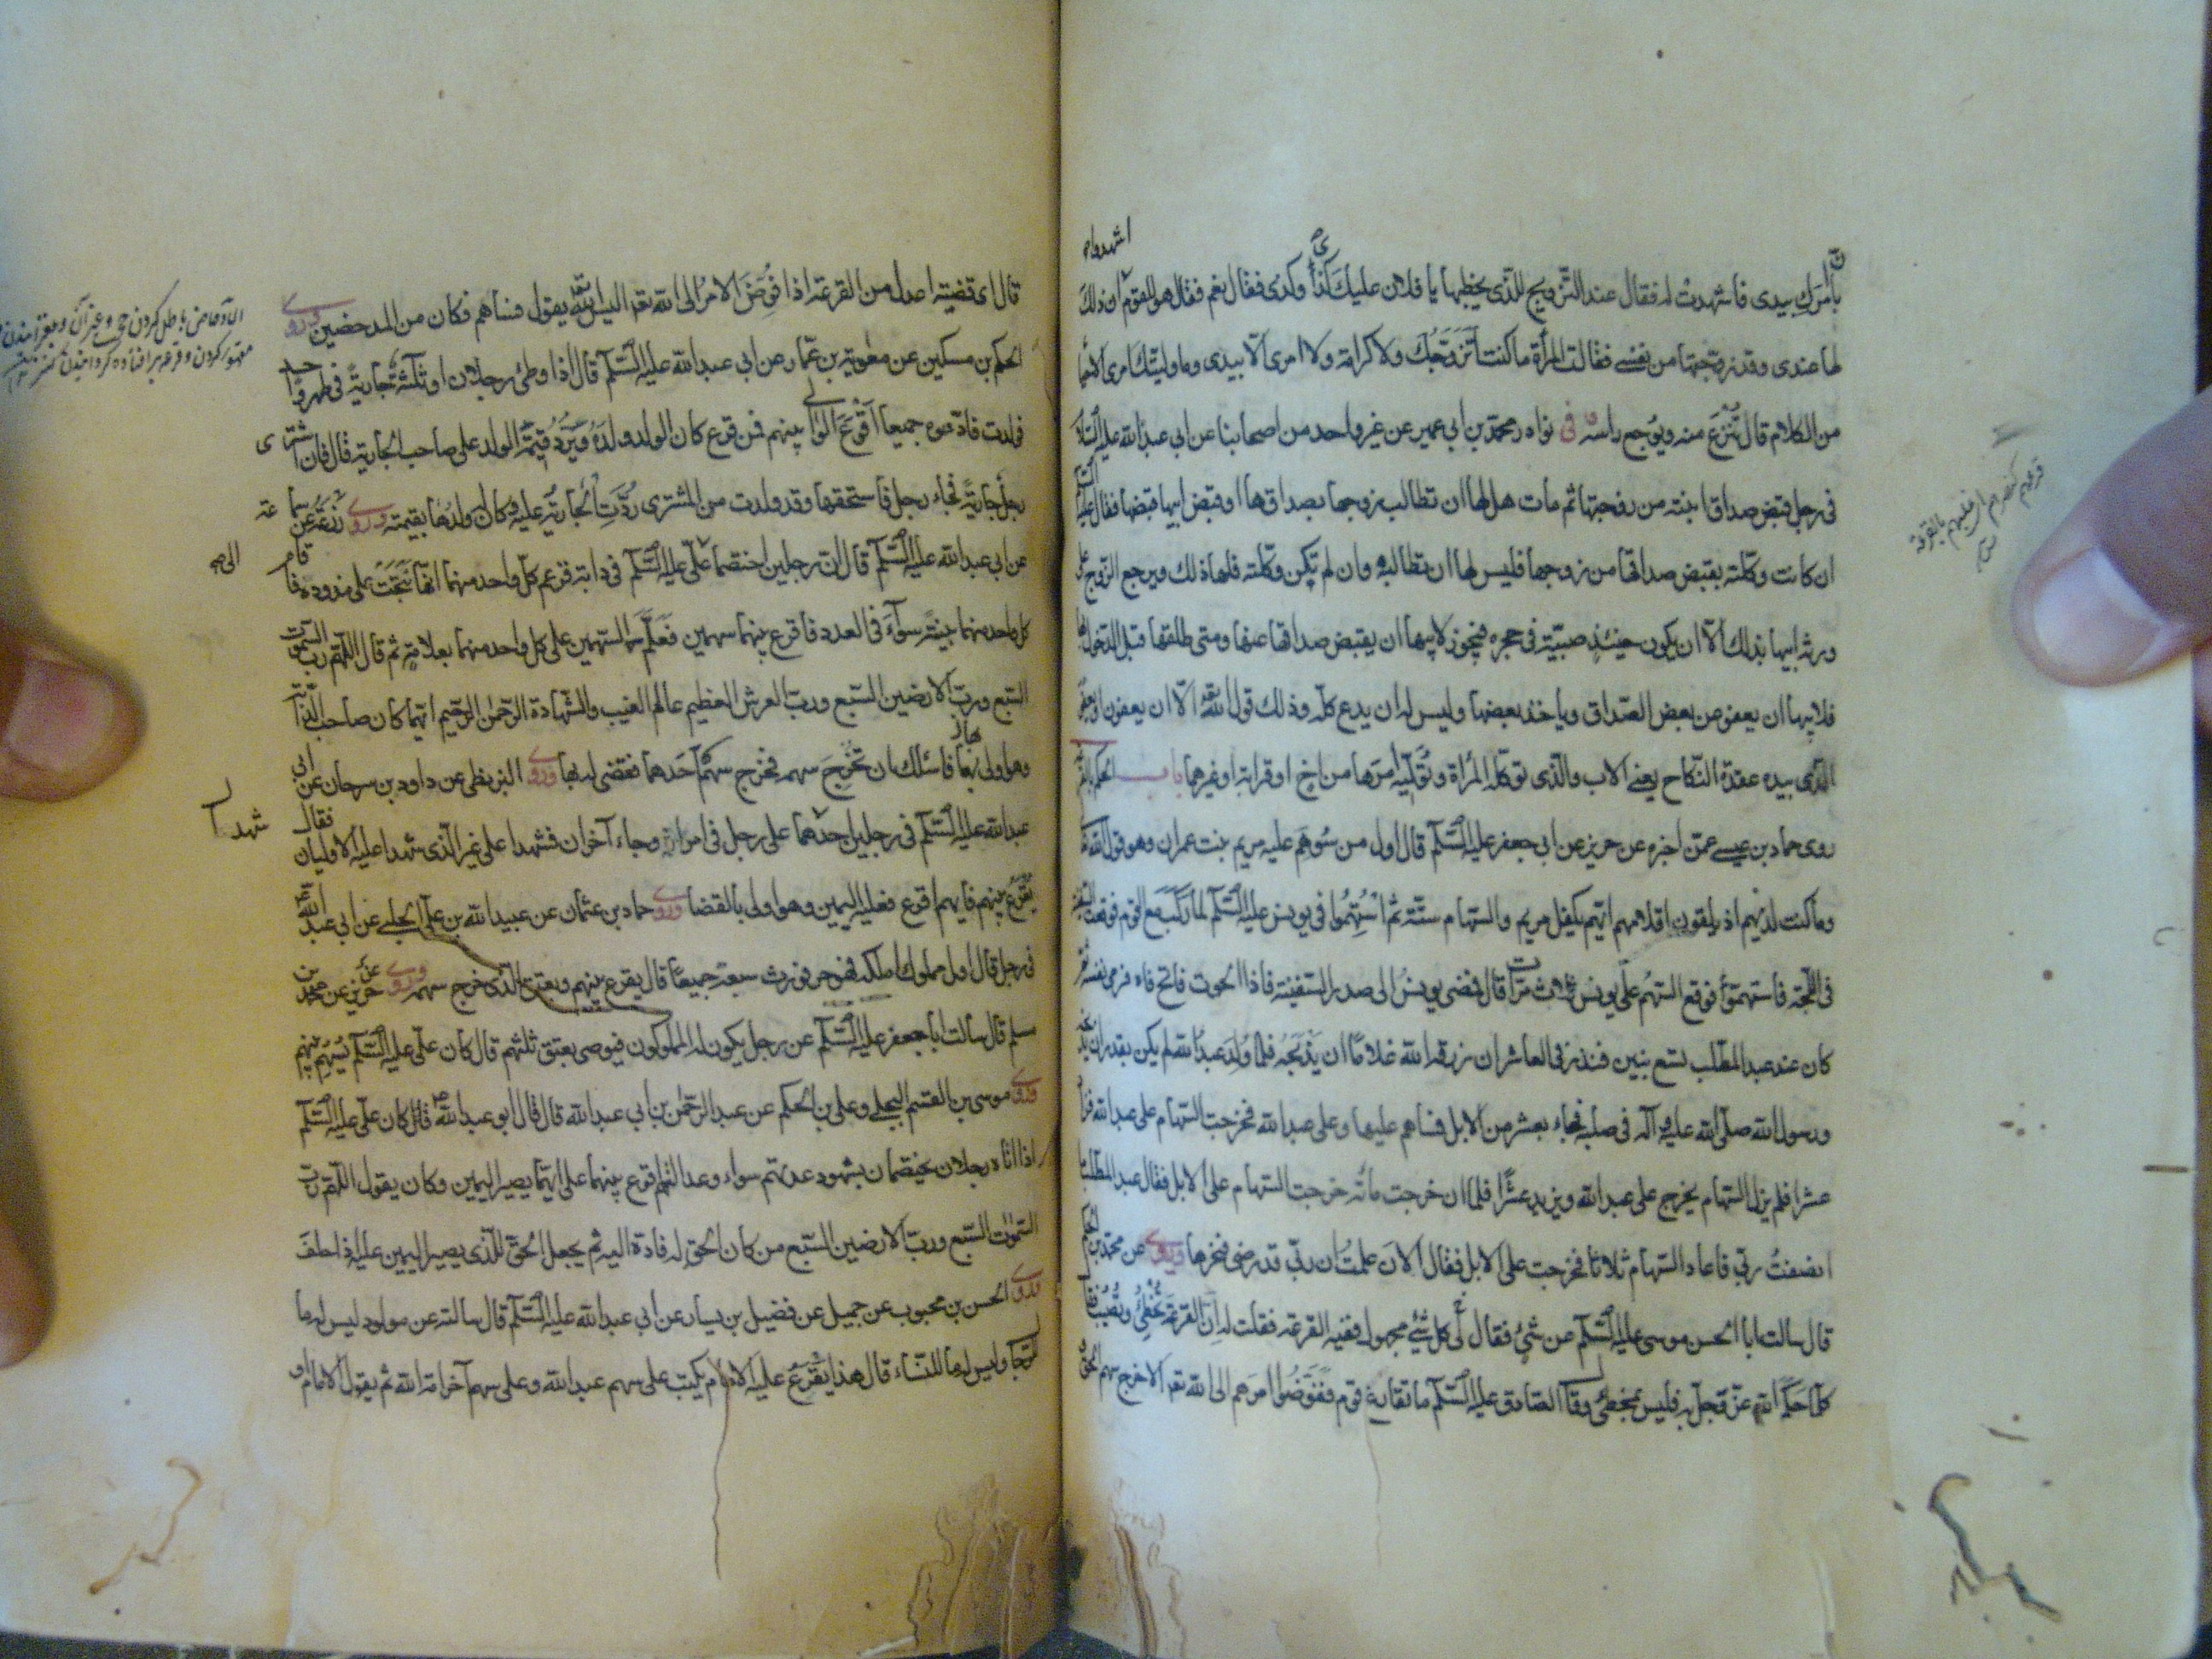 اشهدوا
بأمرك بيدى فاشهدت له فقال عند التزويج للذى يخطبها يا فلان عليك كذا وكذى فقال نعم فقال هو للقوم اشهدوا ان ذلك
لها عندى وقد زوجتها من نفسى فقالت المرأة ما كنت اتزوجك ولا كرامة ولا امرى الا بيدى وما وليتك امرى الا حياء
من الكلام قال تنزع منه ويوجع راسه وفى نوادر محمد بن ابى عمير عن غير واحد من اصحابنا عن ابى عبد الله عليه السلم
فى رجل قبض صداق ابنته من زوجها ثم مات هل لها ان تطالب زوجها بصداقها او قبض ابيها قبضها فقال عليه السلم
ان كانت وكلته بقبض صداقها من زوجها فليس لها ان تطالبه وان لم تكن وكلته فلها ذلك ويرجع الزوج على
ورثة ابيها بذلك الا ان يكون حينئذ صبية فى حجره فيجوز لابيها ان يقبض صداقها عنها ومتى طلقها قبل الدخول بها
فلابيها ان يعفو عن بعض الصداق وياخذ بعضها وليس له ان يدع كله وذلك قول الله تعه الا ان يعفون او يعفو
الذى بيده عقدة النكاح يعنى الاب والذى توكله المراة وتوليه امرها من اخ او قرابة او غيرهما باب الحكم بالقرعة
روى حماد بن عيسى عمن اخبره عن حريز عن ابى جعفر عليه السلم قال اول من سوهم عليه مريم بنت عمران وهو قول الله تعه
وما كنت لديهم اذ يلقون اقلامهم ايهم يكفل مريم والسهام ستة ثم استهموا فى يونس عليه السلم لما ركب مع القوم فوقفت السفينة
فى اللجة فاستهموا فوقع السهم على يونس ثلاث مرات قال فمضى يونس الى صدر السفينة فاذا الحوت فاتح فاه فرمى نفسه ثم
كان عند عبد المطلب تسع بنين فنذر فى العاشر ان رزقه الله غلاما ان يذبحه فلما ولد عبد الله لم يكن يقدر ان يذبحه
ورسول الله صلى الله عليه وآله فى صلبه فجاء بعشر من الابل فساهم عليها وعلى عبد الله فخرجت السهام على عبد الله فزاد
عشرا فلم يزل السهام يخرج على عبد الله ويزيد عشرا فلما ان خرجت مائة خرجت السهام على الابل فقال عبد المطلب ما
انصفت ربى فاعاد السهام ثلاثا فخرجت على الابل فقال الان علمت ان ربى قد رضى فنحرها وروى عن محمد بن الحكم
قال سالت ابا الحسن موسى عليه السلم عن شئ فقال لى كل شئ مجهول ففيه القرعة فقلت له ان القرعة تخطئ وتصيب فقال
كلما حكم الله عز وجل به فليس بمخطئ وقال الصادق عليه السلم ما تقارع قوم ففوضوا امرهم الى الله تعه الا خرج سهم المحق و
قال اى قضية اعدل من القرعة اذا فوض الامر الى الله تعه اليس الله تعه يقول فساهم فكان من المدحضين وروى
الحكم بن مسكين عن معوية بن عمار عن ابى عبد الله عليه السلم قال اذا وطئ رجلان او ثلثة جارية فى طهر واحد
فولدت فادعوه جميعا اقرع الوالى بينهم فمن قرع كان الولد ولده ويرد قيمة الولد على صاحب الجارية قال فان اشترى
رجل جارية فجاء رجل فاستحقها وقد ولدت من المشترى ردت الجارية عليه وكان له ولدها بقيمته وروى زرعة عن سماعة
عن ابى عبد الله عليه السلم قال ان رجلين اختصما الى على عليه السلم فى دابة فزعم كل واحد منهما انها نتجت على مذوده فاقام
كل واحد منهما بينة سوآء فى العدد فاقرع بينهما سهمين فعلم السهمين على كل واحد منهما بعلامة ثم قال اللهم رب السموات
السبع ورب الارضين السبع ورب العرش العظيم عالم الغيب والشهادة الرحمن الرحيم ايهما كان صاحب الدابة
وهو اولى بها فاسئلك ان تخرج سهمه فخرج سهم احدهما فقضى له بها وروى البزنطى عن داود بن سرحان عن ابى
عبد الله عليه السلم فى رجلين شهدا على رجل فى امر وجاء آخران فشهدا على غير الذى شهدا عليه الاوليان فقال
يقرع بينهم فايهم اقرع فعليه اليمين وهو اولى بالقضا وروى حماد بن عثمان عن عبيد الله بن على الحلبى عن ابى عبد الله
فى رجل قال اول مملوك املكه فهو حر فورث سبعة جميعا قال يقرع بينهم ويعتق الذى خرج سهمه وروى حريز عن محمد بن
مسلم قال سالت ابا جعفر عليه السلم عن رجل يكون له المملوكون فيوصى بعتق ثلثهم قال كان على عليه السلم يسهم بينهم
وروى موسى بن القسم البجلى وعلى بن الحكم عن عبد الرحمن بن ابى عبد الله قال قال ابو عبد الله كان على عليه السلم
اذا اتاه رجلان يختصمان بشهود عدتهم سواء وعدالتهم اقرع بينهما على ايهما يصير اليمين وكان يقول اللهم رب
السموات السبع ورب الارضين السبع من كان الحق له فاده اليه ثم يجعل الحق للذى يصير اليمين عليه اذا حلف
وروى الحسن بن محبوب عن جميل عن فضيل بن يسار عن ابى عبد الله عليه السلم قال سالته عن مولود ليس له ما
للرجال وليس له ما للنساء قال هذا يقرع عليه الامام يكتب على سهم عبد الله وعلى سهم آخر امة الله ثم يقول الامام او